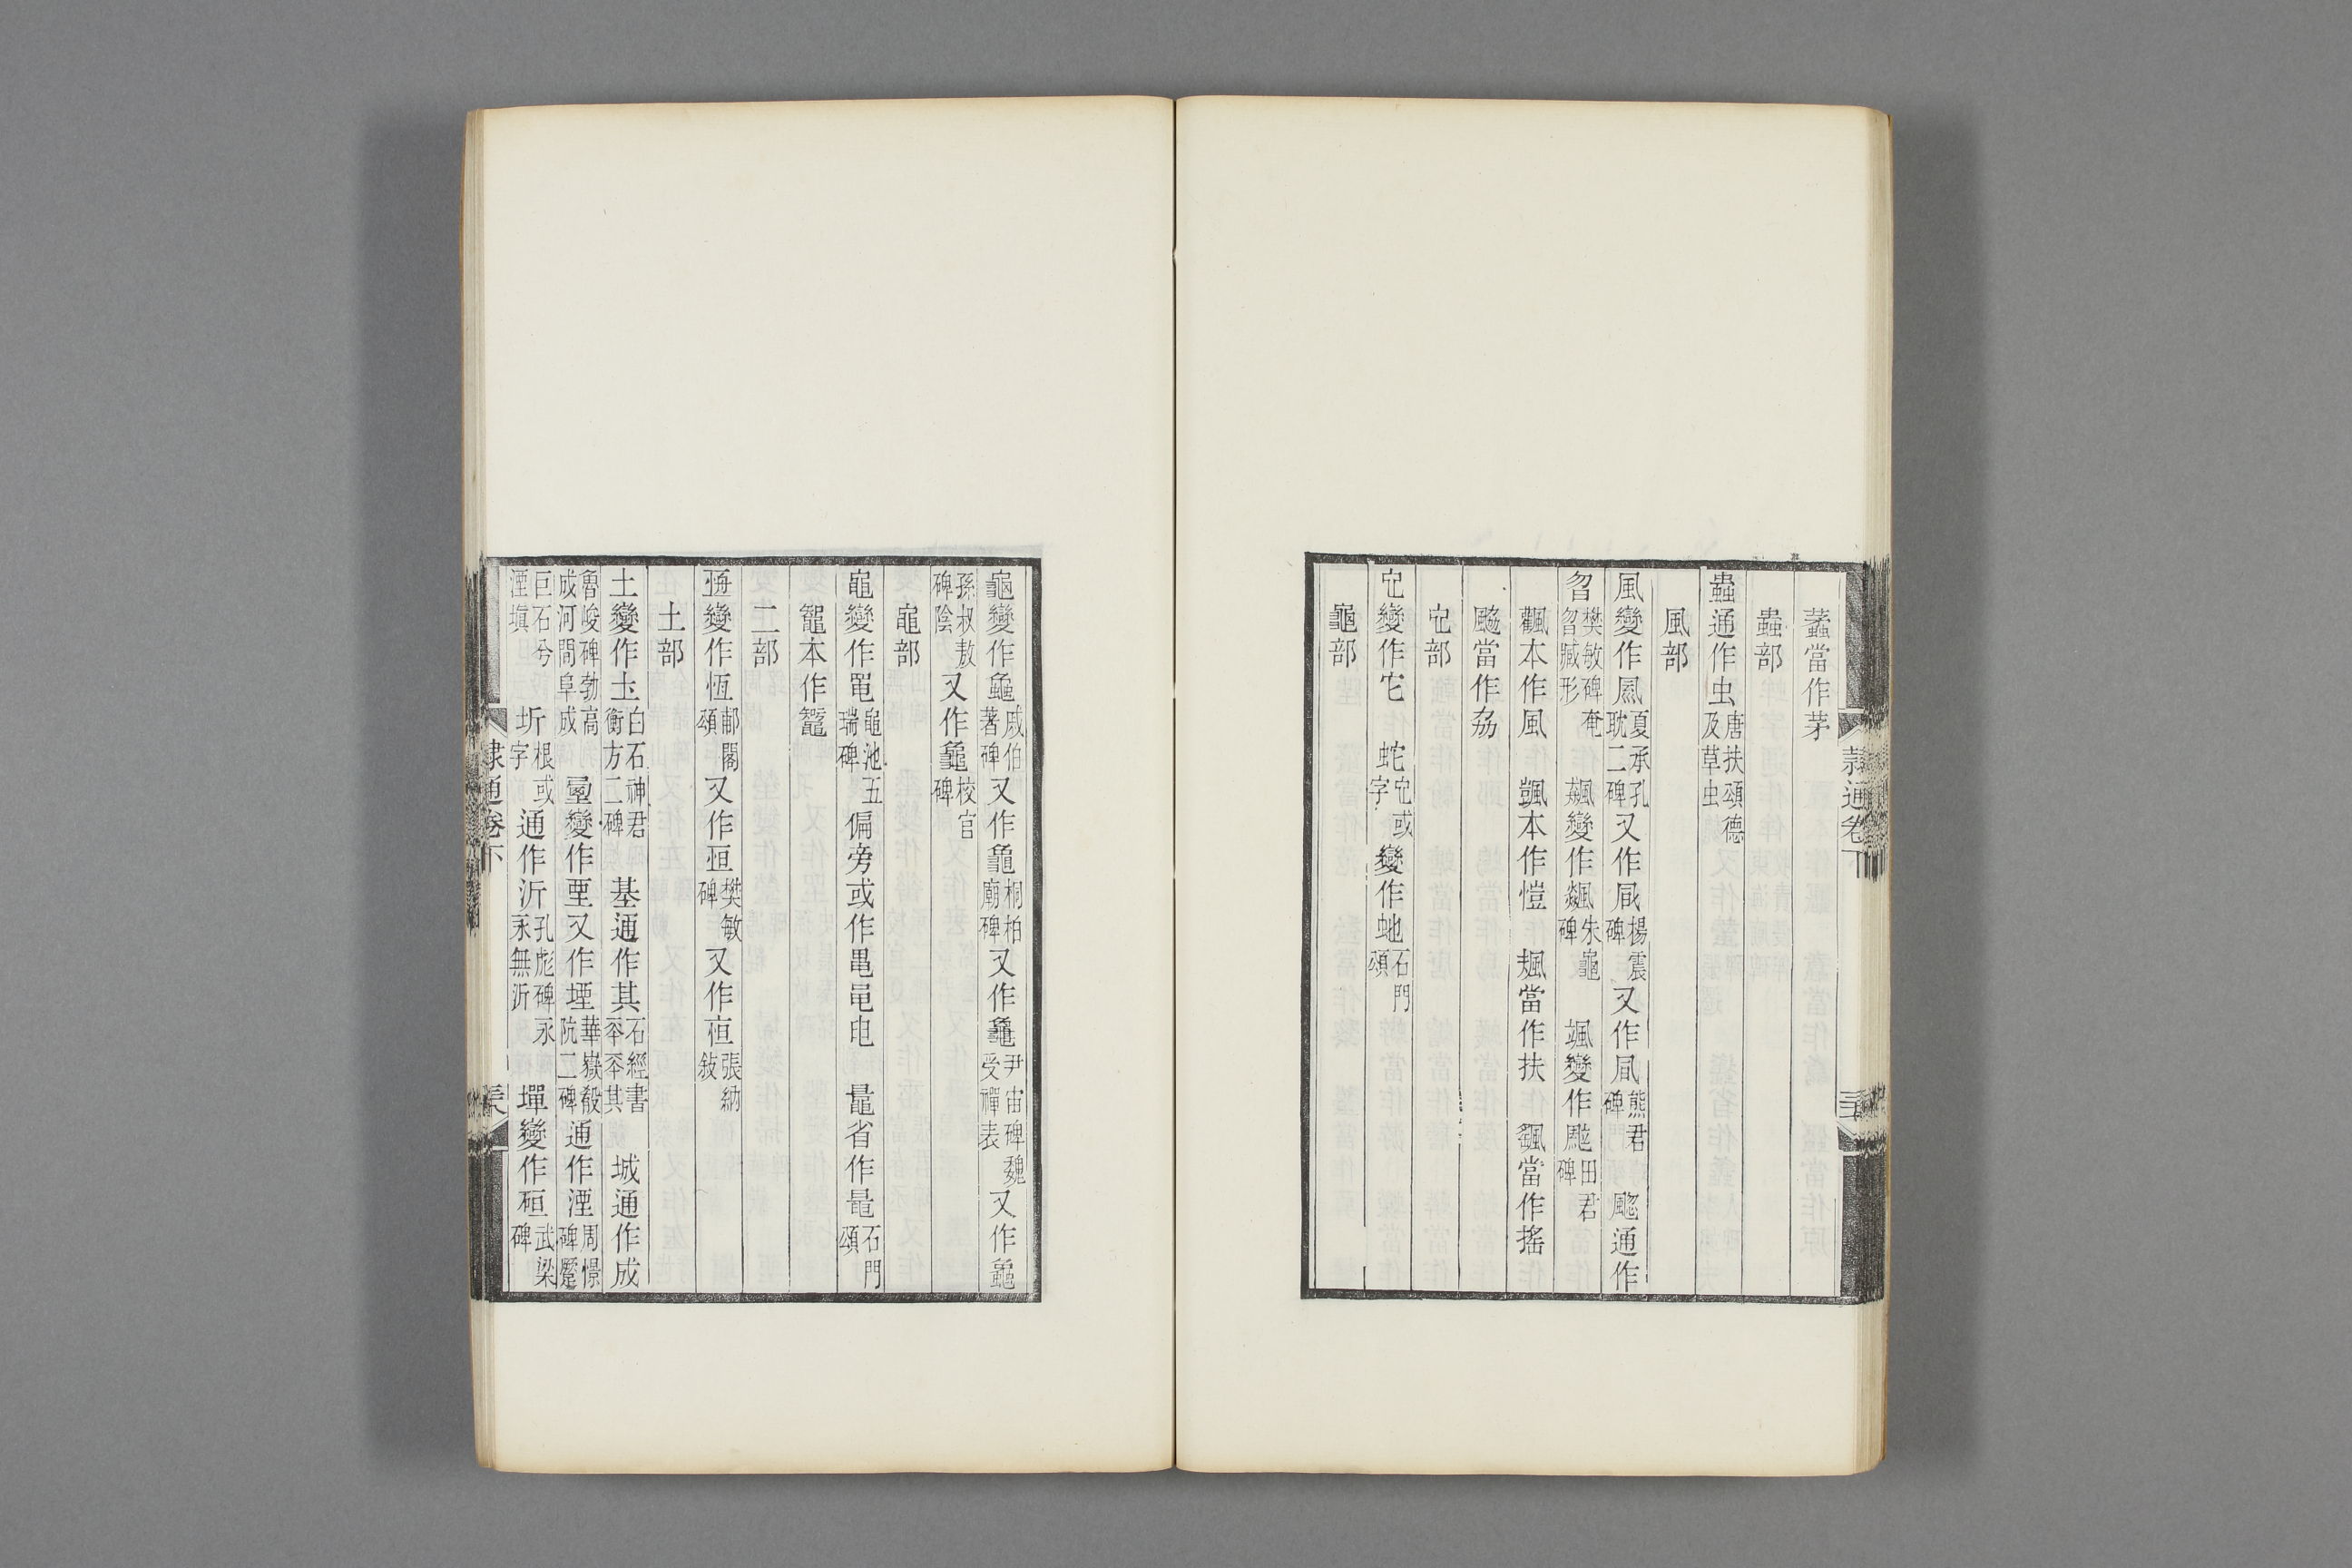 蟊當作茅
蟲部
蟲通作虫唐扶頌德及草虫
風部
風變作凮夏承孔耽二碑又作凬楊震碑又作凬熊君碑 颮通作
曶樊敏碑奄曶臧形 飆變作飇朱龜碑 颯變作碑田君
飌本作風 颽本作愷 颫當作扶 颻當作搖
當作刕
它部
它變作它 蛇它或字變作虵石門頌
龜部
龜變作龜戚伯著碑又作龜桐柏廟碑又作龜尹宙碑魏受禪表又作龜
孫叔敖碑陰又作龜校官碑
黽部
黽變作黽黽池五瑞碑偏旁或作黽黽电 鼂省作鼂石門頌
鼅本作鼅
二部
恆變作恆郙閣頌又作亙樊敏碑又作亘張納敍
土部
土變作圡白石神君衡方二碑 基通作其石經書丕丕其 城通作成
魯峻碑勃高成河閒阜成 垔變作垔又作堙華嶽殽阬二碑通作湮周憬碑壓
巨石兮湮塡 圻根或字通作沂孔彪碑永永無沂 墠變作武梁碑
隸通卷下
隸通卷下